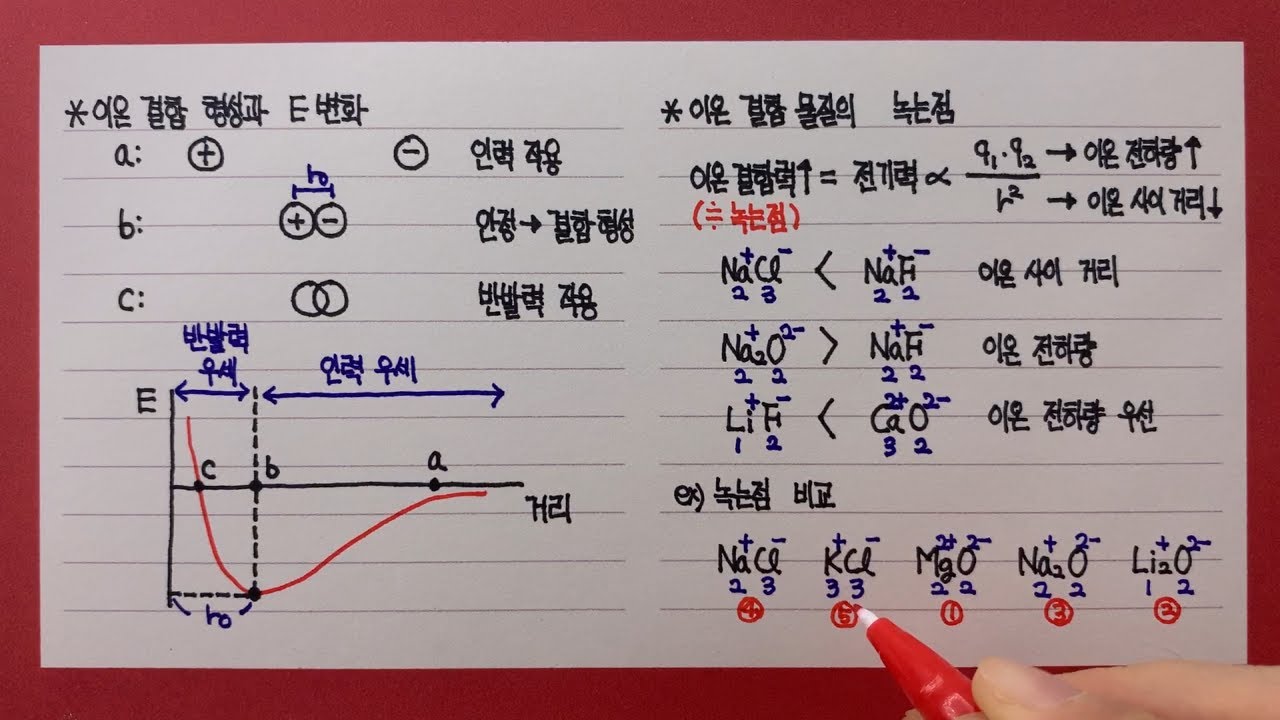 * 이온 결합 형성과 E 변화
a: ⊕ ⊖ 인력 작용
r₀
b: ⊕⊖ 안정 → 결합 형성
c: 반발력 작용
반발력 우세
인력 우세
E
c b a
거리
r₀
* 이온 결합 물질의 녹는점
이온 결합력↑ = 전기력 ∝ q₁·q₂ / r²
→ 이온 전하량↑
→ 이온 사이 거리↓
(≒ 녹는점)
Na⁺Cl⁻ < Na⁺F⁻ 이온 사이 거리
2 3 2 2
Na₂⁺O²⁻ > Na⁺F⁻ 이온 전하량
2 2 2 2
Li⁺F⁻ < Ca²⁺O²⁻ 이온 전하량 우선
1 2 3 2
ex) 녹는점 비교
Na⁺Cl⁻ K⁺Cl⁻ Mg²⁺O²⁻ Na₂⁺O²⁻ Li₂⁺O²⁻
2 3 3 3 2 2 2 2 1 2
④ ⑤ ① ③ ②